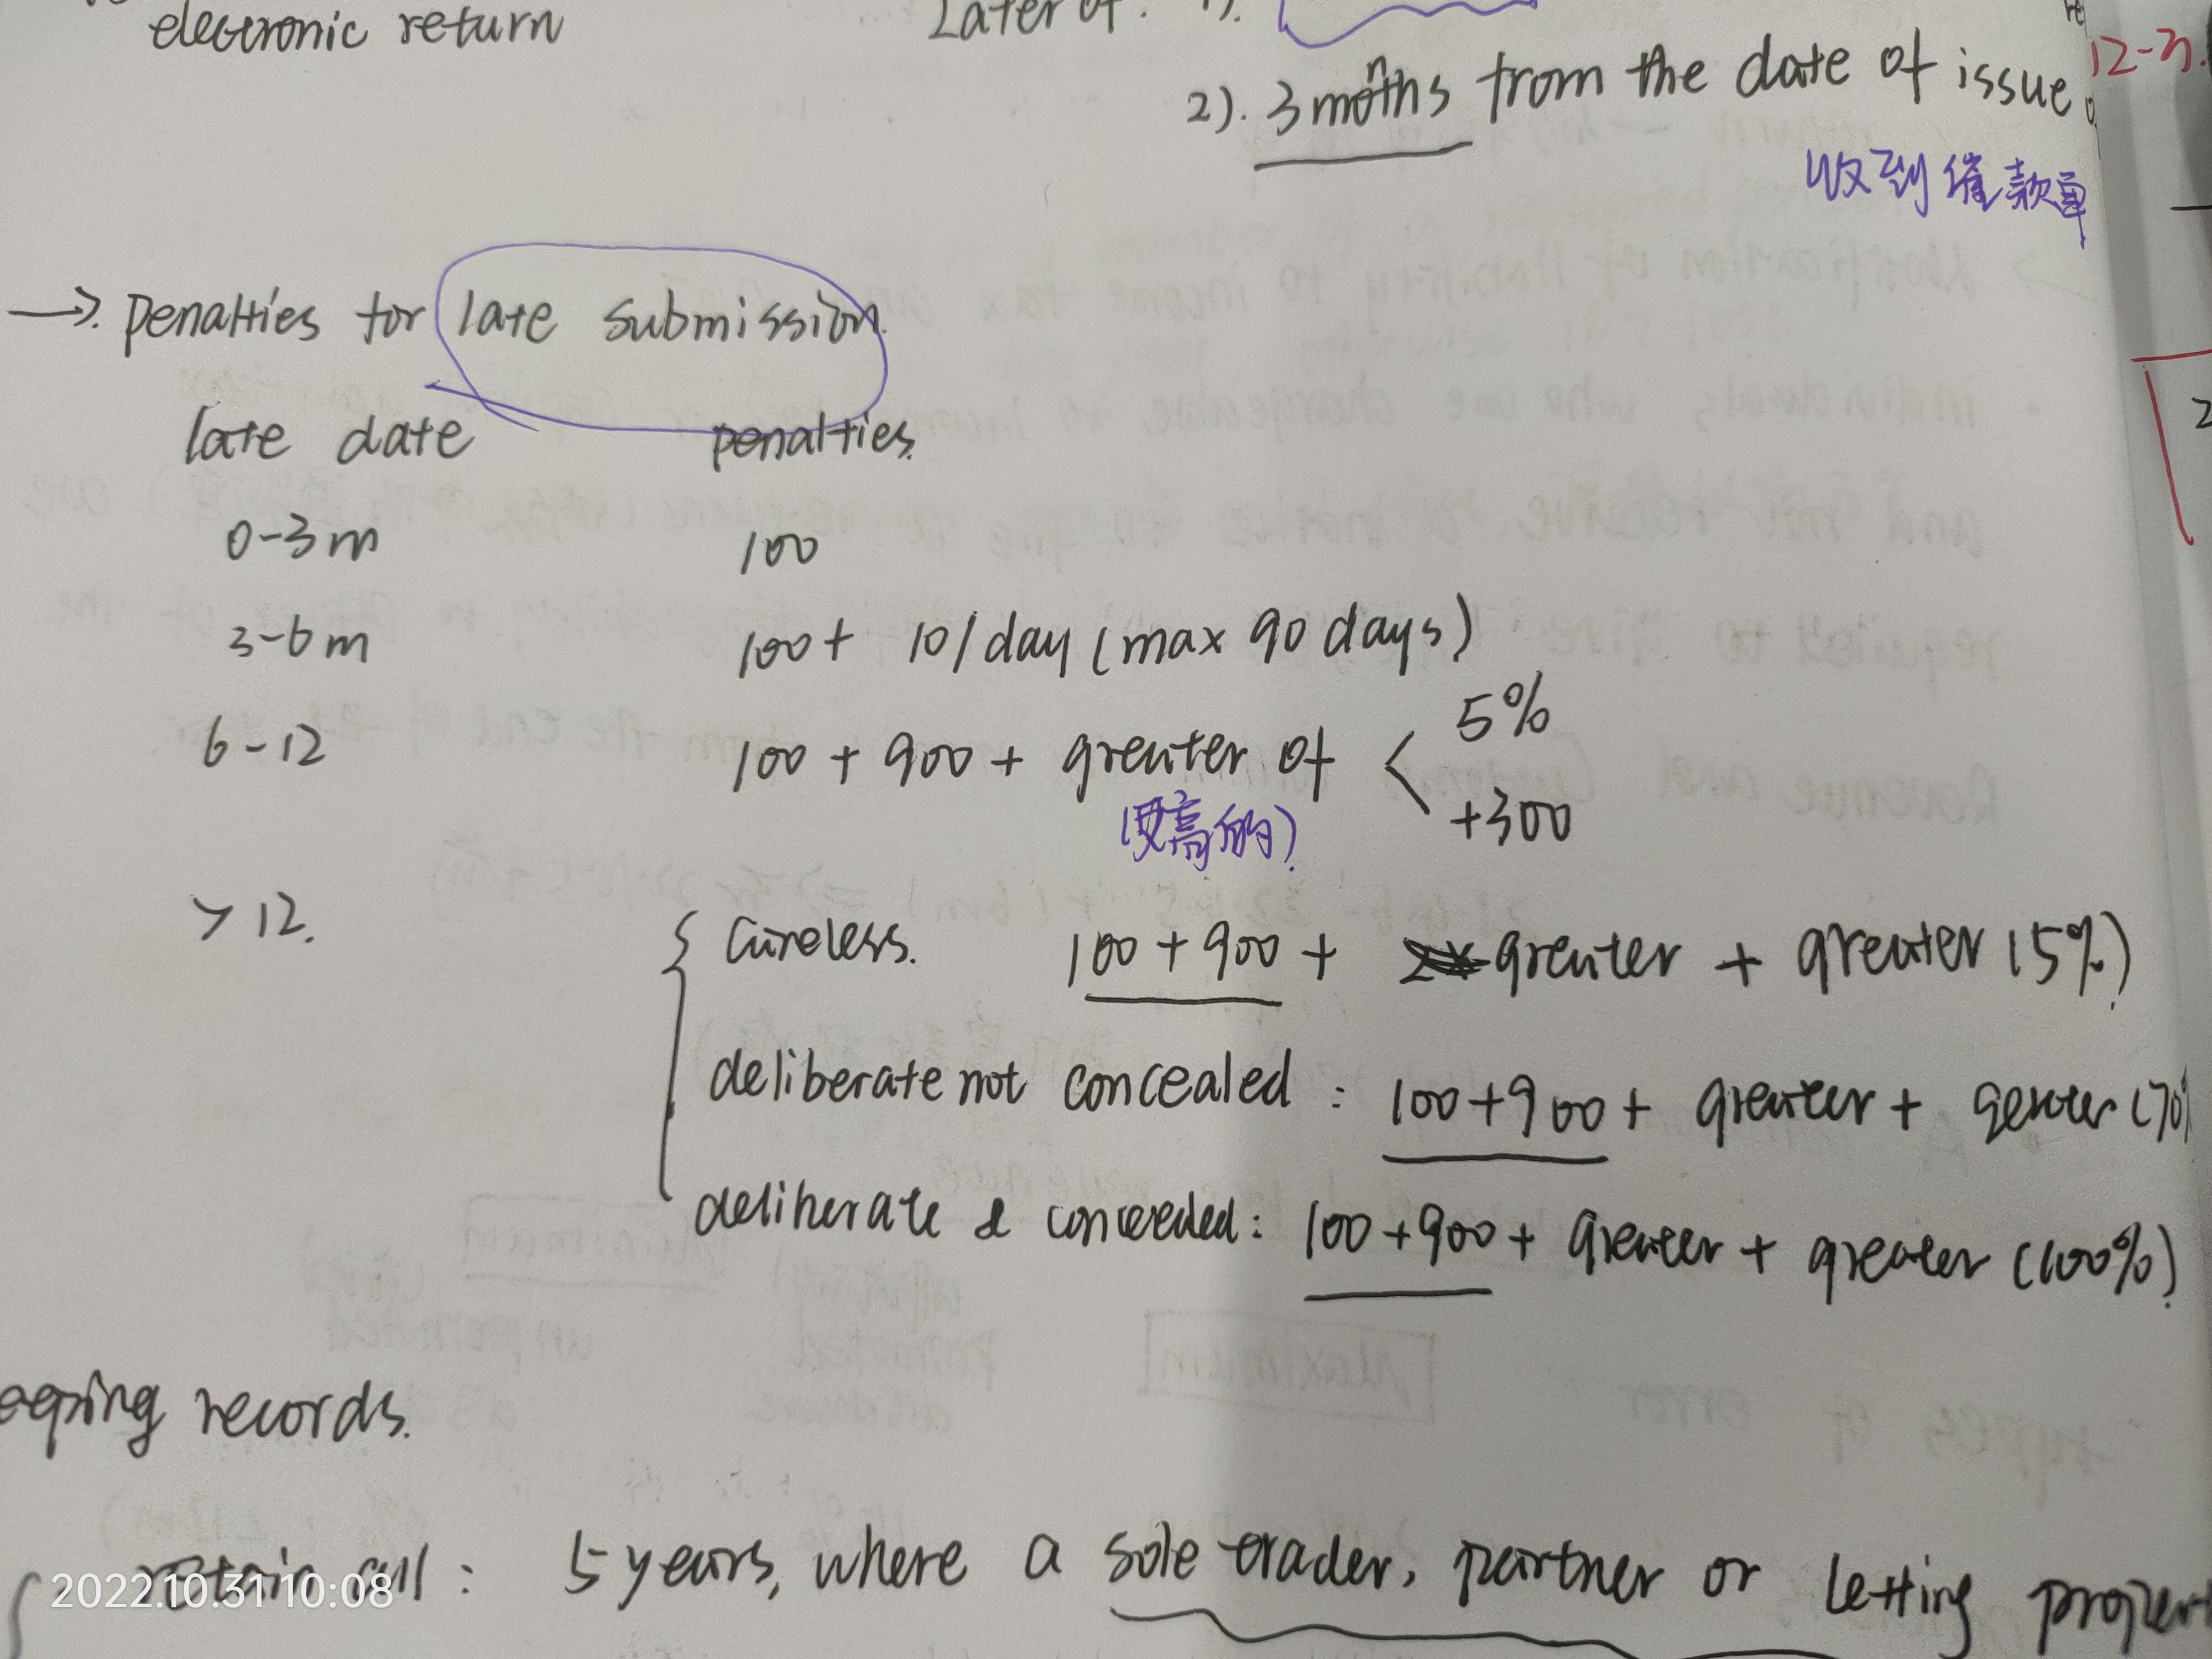 electronic return
Later of: 1).
2). 3 months from the date of issue
12-31.
收到催款单
→ penalties for late submission.
late date penalties.
0-3m 100
3-6m 100 + 10/day (max 90 days)
6-12 100 + 900 + greater of < 5%
+300
(更高的)
> 12. { Careless. 100 + 900 + greater + greater (5%)
deliberate not concealed : 100 + 900 + greater + greater (70%
deliberate & concealed : 100 + 900 + greater + greater (100%)
eeping records.
retain all : 5 years, where a sole trader, partner or letting propert
2022.10.31 10:08